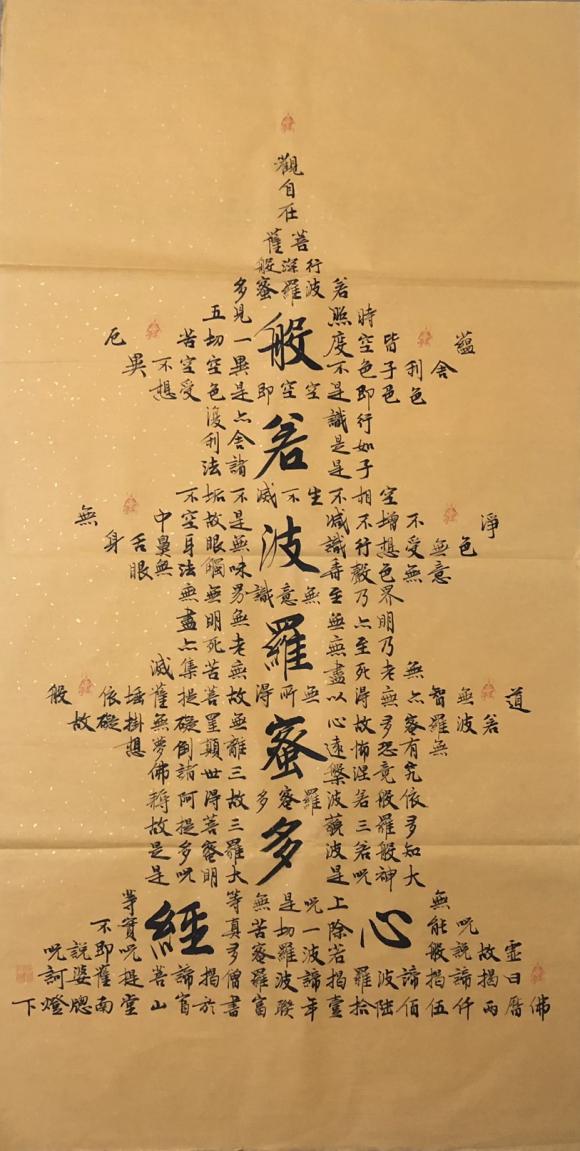 觀
自
在
菩薩
行深般
若波羅蜜多
時照見五
蘊皆空度一切苦厄
舍利子色不異空空不異
色色即是空空即是色受想
行識亦復
如是舍利
子是諸法
空相不生不滅不垢不
淨不增不減是故空中無
色無受想行識無眼耳鼻舌身
意無色聲香味觸法無眼
界乃至無意識界無
明亦無無明盡
乃至無老死亦
無老死盡無苦集滅
道無智亦無得以無所得故菩提薩埵依般
若波羅蜜多故心無罣礙無掛礙故
無有恐怖遠離顛倒夢想
究竟涅槃三世諸佛
依般若波羅蜜多故得阿耨
多羅三藐三菩提故
知般若波羅蜜多是
大神呪是大明呪是
無上呪是無等等
呪能除一切苦真實不
虛故說般若波羅蜜多呪即說呪
曰揭諦揭諦波羅揭諦波羅僧揭諦菩提薩婆訶
佛曆兩仟伍佰陸拾壹年聯富書於富山堂南牕燈下
般若波羅蜜多心經